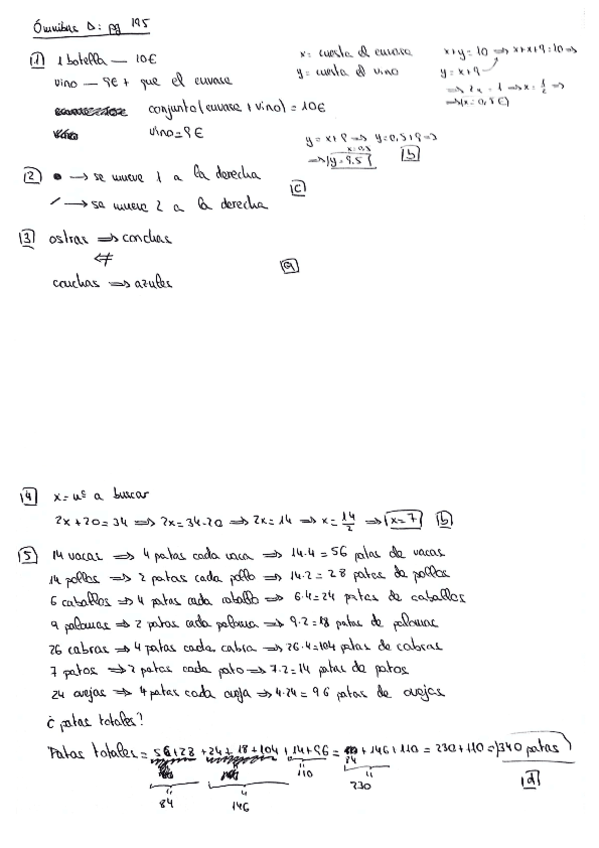 Ómnibus D: pg 195
1 1 botella — 10€
vino — 9€ + que el envase
conjunto (envase + vino) = 10€
vino = 9€
x = cuesta el envase
y = cuesta el vino
x+y = 10 ⟹ x+x+9 = 10 ⟹
y = x+9
⟹ 2x = 1 ⟹ x = 1/2 ⟹
⟹ (x = 0,5€)
y = x+9 ⟹ y = 0,5+9 ⟹
x=0,5
⟹ y = 9.5 b
2 • → se mueve 1 a la derecha
/ → se mueve 2 a la derecha
c
3 ostras ⟹ conchas
⇎
conchas ⟹ azules
a
4 x = nº a buscar
2x+20 = 34 ⟹ 2x = 34-20 ⟹ 2x = 14 ⟹ x = 14/2 ⟹ x = 7 b
5 14 vacas ⟹ 4 patas cada vaca ⟹ 14·4 = 56 patas de vacas
14 pollos ⟹ 2 patas cada pollo ⟹ 14·2 = 28 patas de pollos
6 caballos ⟹ 4 patas cada caballo ⟹ 6·4 = 24 patas de caballos
9 palomas ⟹ 2 patas cada paloma ⟹ 9·2 = 18 patas de palomas
26 cabras ⟹ 4 patas cada cabra ⟹ 26·4 = 104 patas de cabras
7 patos ⟹ 2 patas cada pato ⟹ 7·2 = 14 patas de patos
24 ovejas ⟹ 4 patas cada oveja ⟹ 4·24 = 96 patas de ovejas
¿ patas totales?
Patas totales = 56+28+24+18+104+14+96 = 84+146+110 = 230+110 = 340 patas
84 146 110 230
d